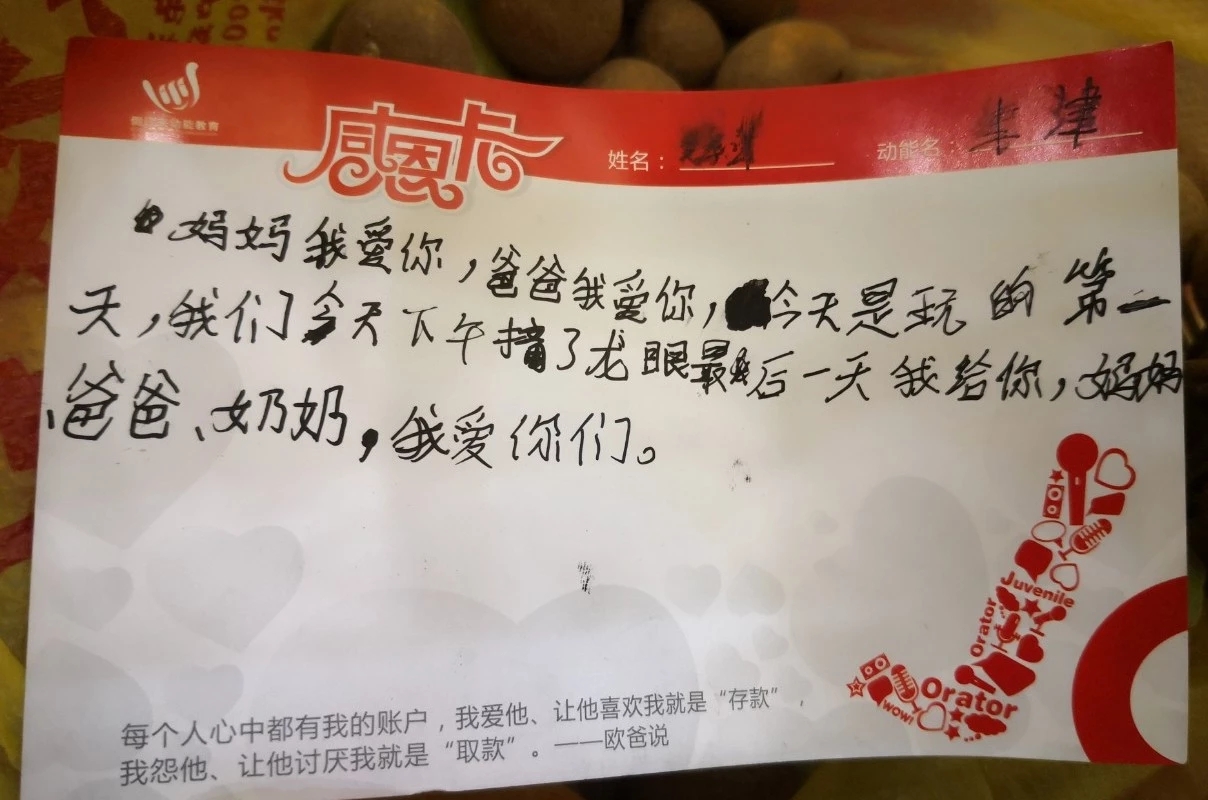 感恩卡
姓名：
动能名：
津
妈妈我爱你，爸爸我爱你，今天是玩的第一
天，我们今天下午摘了龙眼最后一天我给你，妈妈
、爸爸、奶奶，我爱你们。
Juvenile
Orator
Orator
wow!
每个人心中都有我的账户，我爱他、让他喜欢我就是“存款”，
我怨他、让他讨厌我就是“取款”。——欧爸说